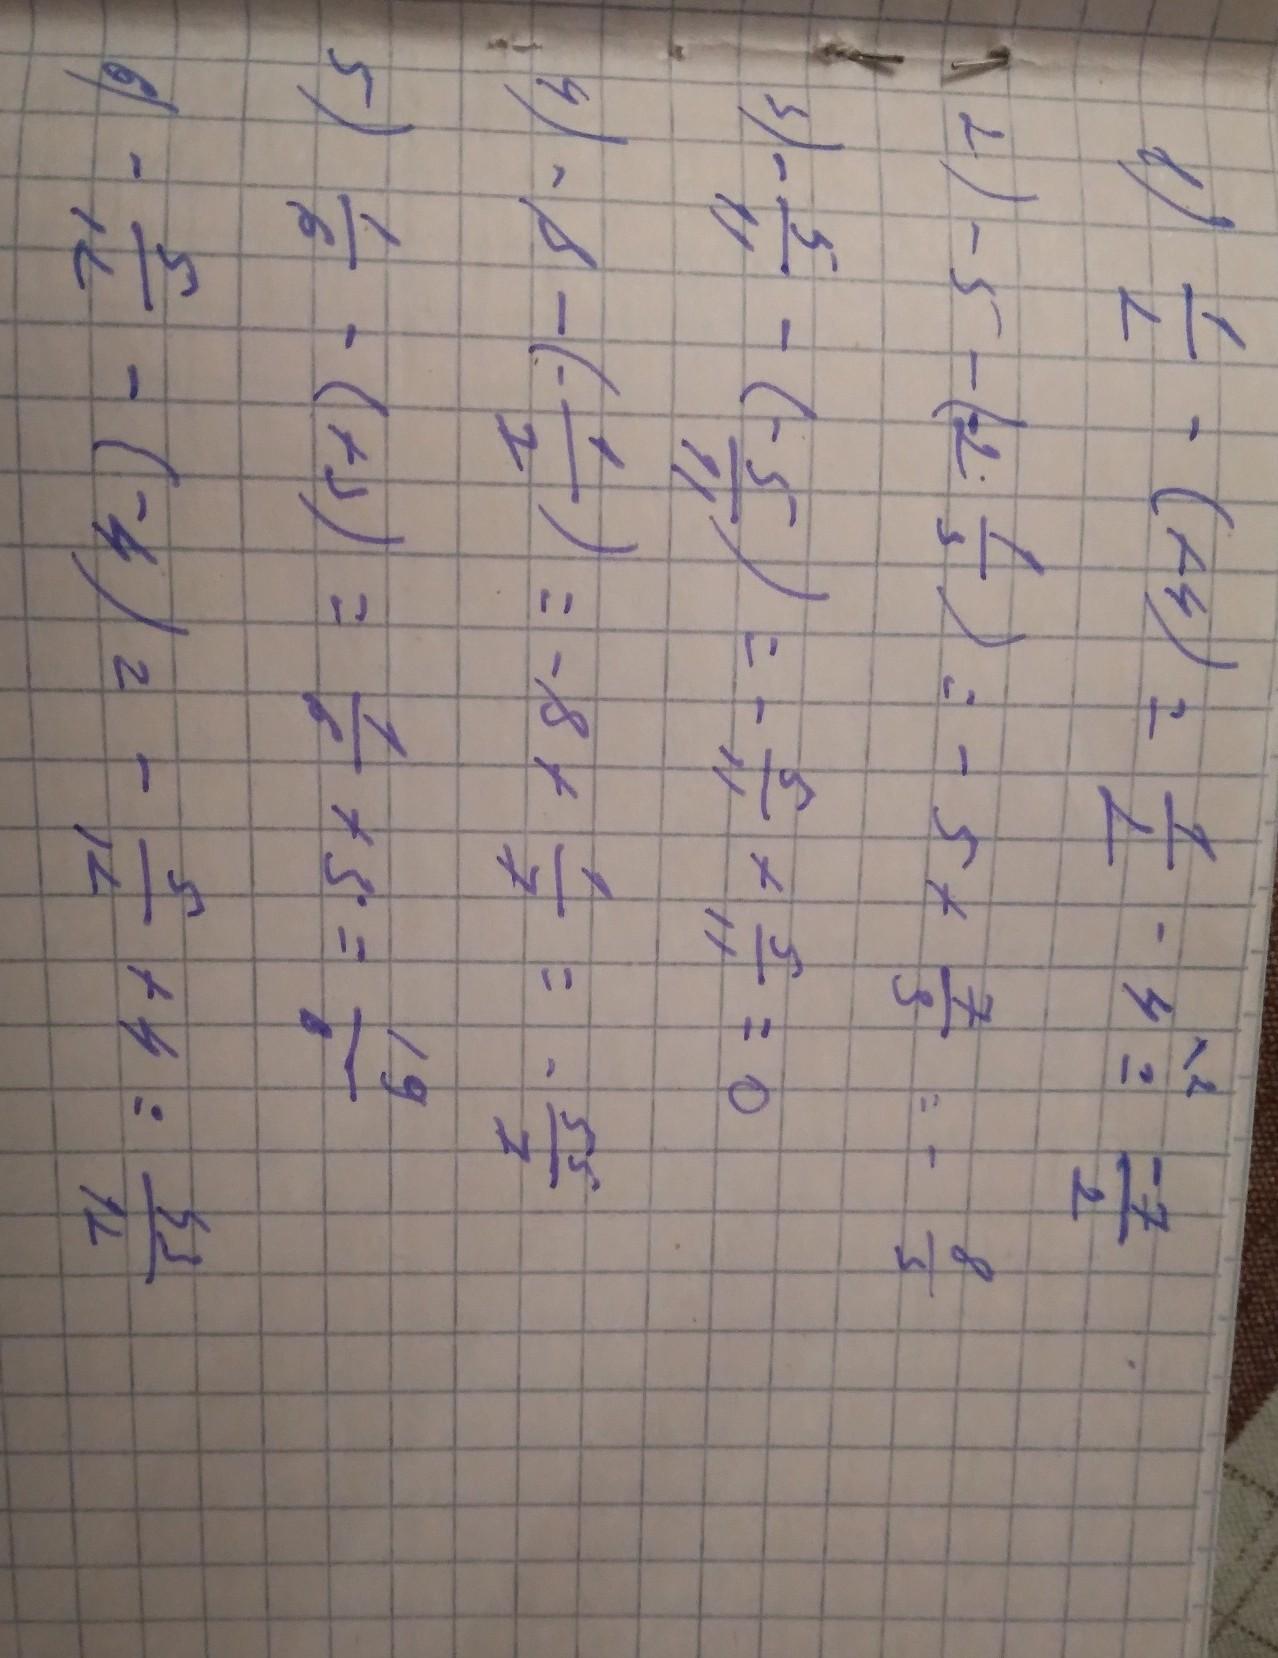 1) 1/2 - (+4) = 1/2 - 4 \2 = -7/2
2) -5 - (-2 1/3) = -5 + 7/3 = - 8/3
3) - 5/11 - (- 5/11) = - 5/11 + 5/11 = 0
4) -8 - (- 1/7) = -8 + 1/7 = - 55/7
5) 1/6 - (+3) = 1/6 + 3 = 19/6
6) - 5/12 - (-4) = - 5/12 + 4 = 43/12